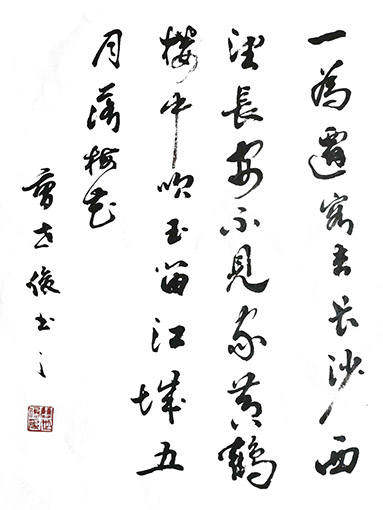 一為遷客去長沙西
望長安不見家黃鶴
樓中吹玉笛江城五
月落梅花
曹世俊書